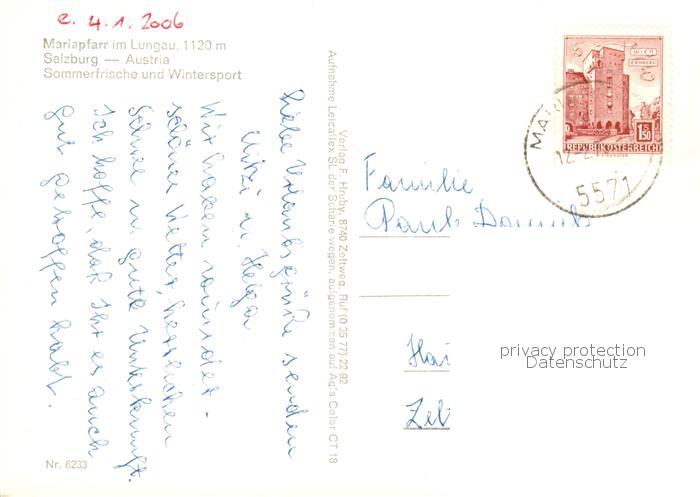 e. 4.1.2006
Mariapfarr im Lungau, 1120 m
Salzburg — Austria
Sommerfrische und Wintersport
Liebe Urlaubsgrüße senden
Mitzi u. Helga
Wir haben zumindest
schönes Wetter, herrlichen
Schnee u. gute Unterkunft.
Ich hoffe, daß Ihr es auch
gut getroffen habt.
Nr. 6233
Verlag F. Hruby, 8740 Zeltweg, Ruf (0 35 77) 22 92
Aufnahme Leicaflex SL der Schärfe wegen, aufgenommen auf Agfa Color CT 18
WIEN
ERDBERG
1.50
REPUBLIK ÖSTERREICH
5571
Familie
Paul
Hai
Zel
privacy protection
Datenschutz